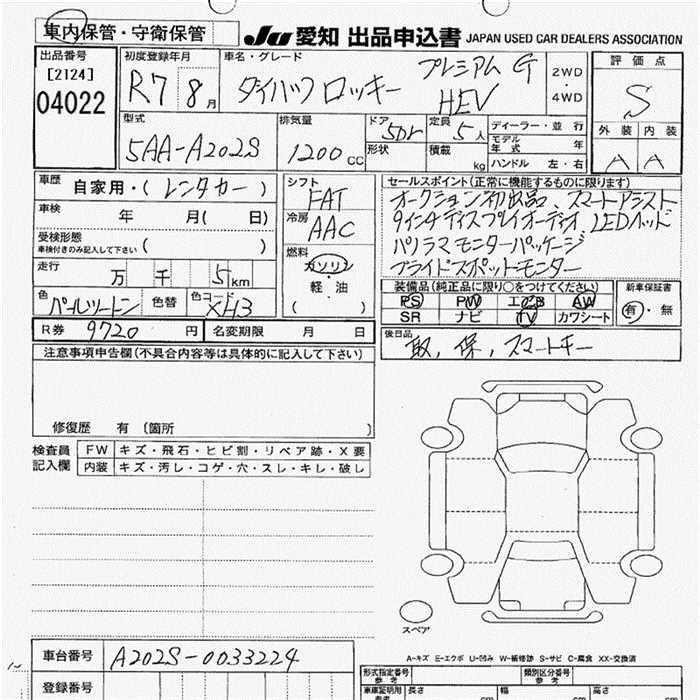 車内保管・守衛保管 JU 愛知 出品申込書 JAPAN USED CAR DEALERS ASSOCIATION
出品番号 [2124] 04022
初度登録年月 R7 8月
車名・グレード ダイハツ ロッキー プレミアム G HEV
2WD ・ 4WD
評価点 S
外装 内装
A A
型式 5AA-A202S
排気量 1200 CC
ドア 5Dr 形状
定員 5人 積載 kg
ディーラー・並行
モデル年式 年
ハンドル 左・右
車歴 自家用・(レンタカー)
車検 年 月( 日)
受検形態 車検付きのみ記入して下さい ( )
走行 万 千 5km
色 パールツートン 色替 色コード XH3
シフト FAT
冷房 AAC
燃料 ガソリン 軽・油 ( ・ )
セールスポイント(正常に機能するものに限ります)
オークション初出品、スマートアシスト
9インチディスプレイオーディオ、LEDヘッド
パノラマモニターパッケージ
ブライドスポットモニター
装備品(純正品に限り○をつけてください)
PS PW エアB AW
SR ナビ TV カワシート
新車保証書 有・無
R券 9720円 名変期限 月 日
後日品 取、保、スマートキー
注意事項申告欄(不具合内容等は具体的に記入して下さい)
修復歴 有 〔箇所 〕
検査員記入欄
FW キズ・飛石・ヒビ割・リペア跡・X要
内装 キズ・汚レ・コゲ・穴・スレ・キレ・破レ
スペア
A-キズ E-エクボ U-凹み W-補修跡 S-サビ C-腐食 XX-交換済
車台番号 A202S-0033224
登録番号
型式指定番号 参考
類別区分番号 参考
車庫証明用 長さ cm 幅 cm 高さ cm